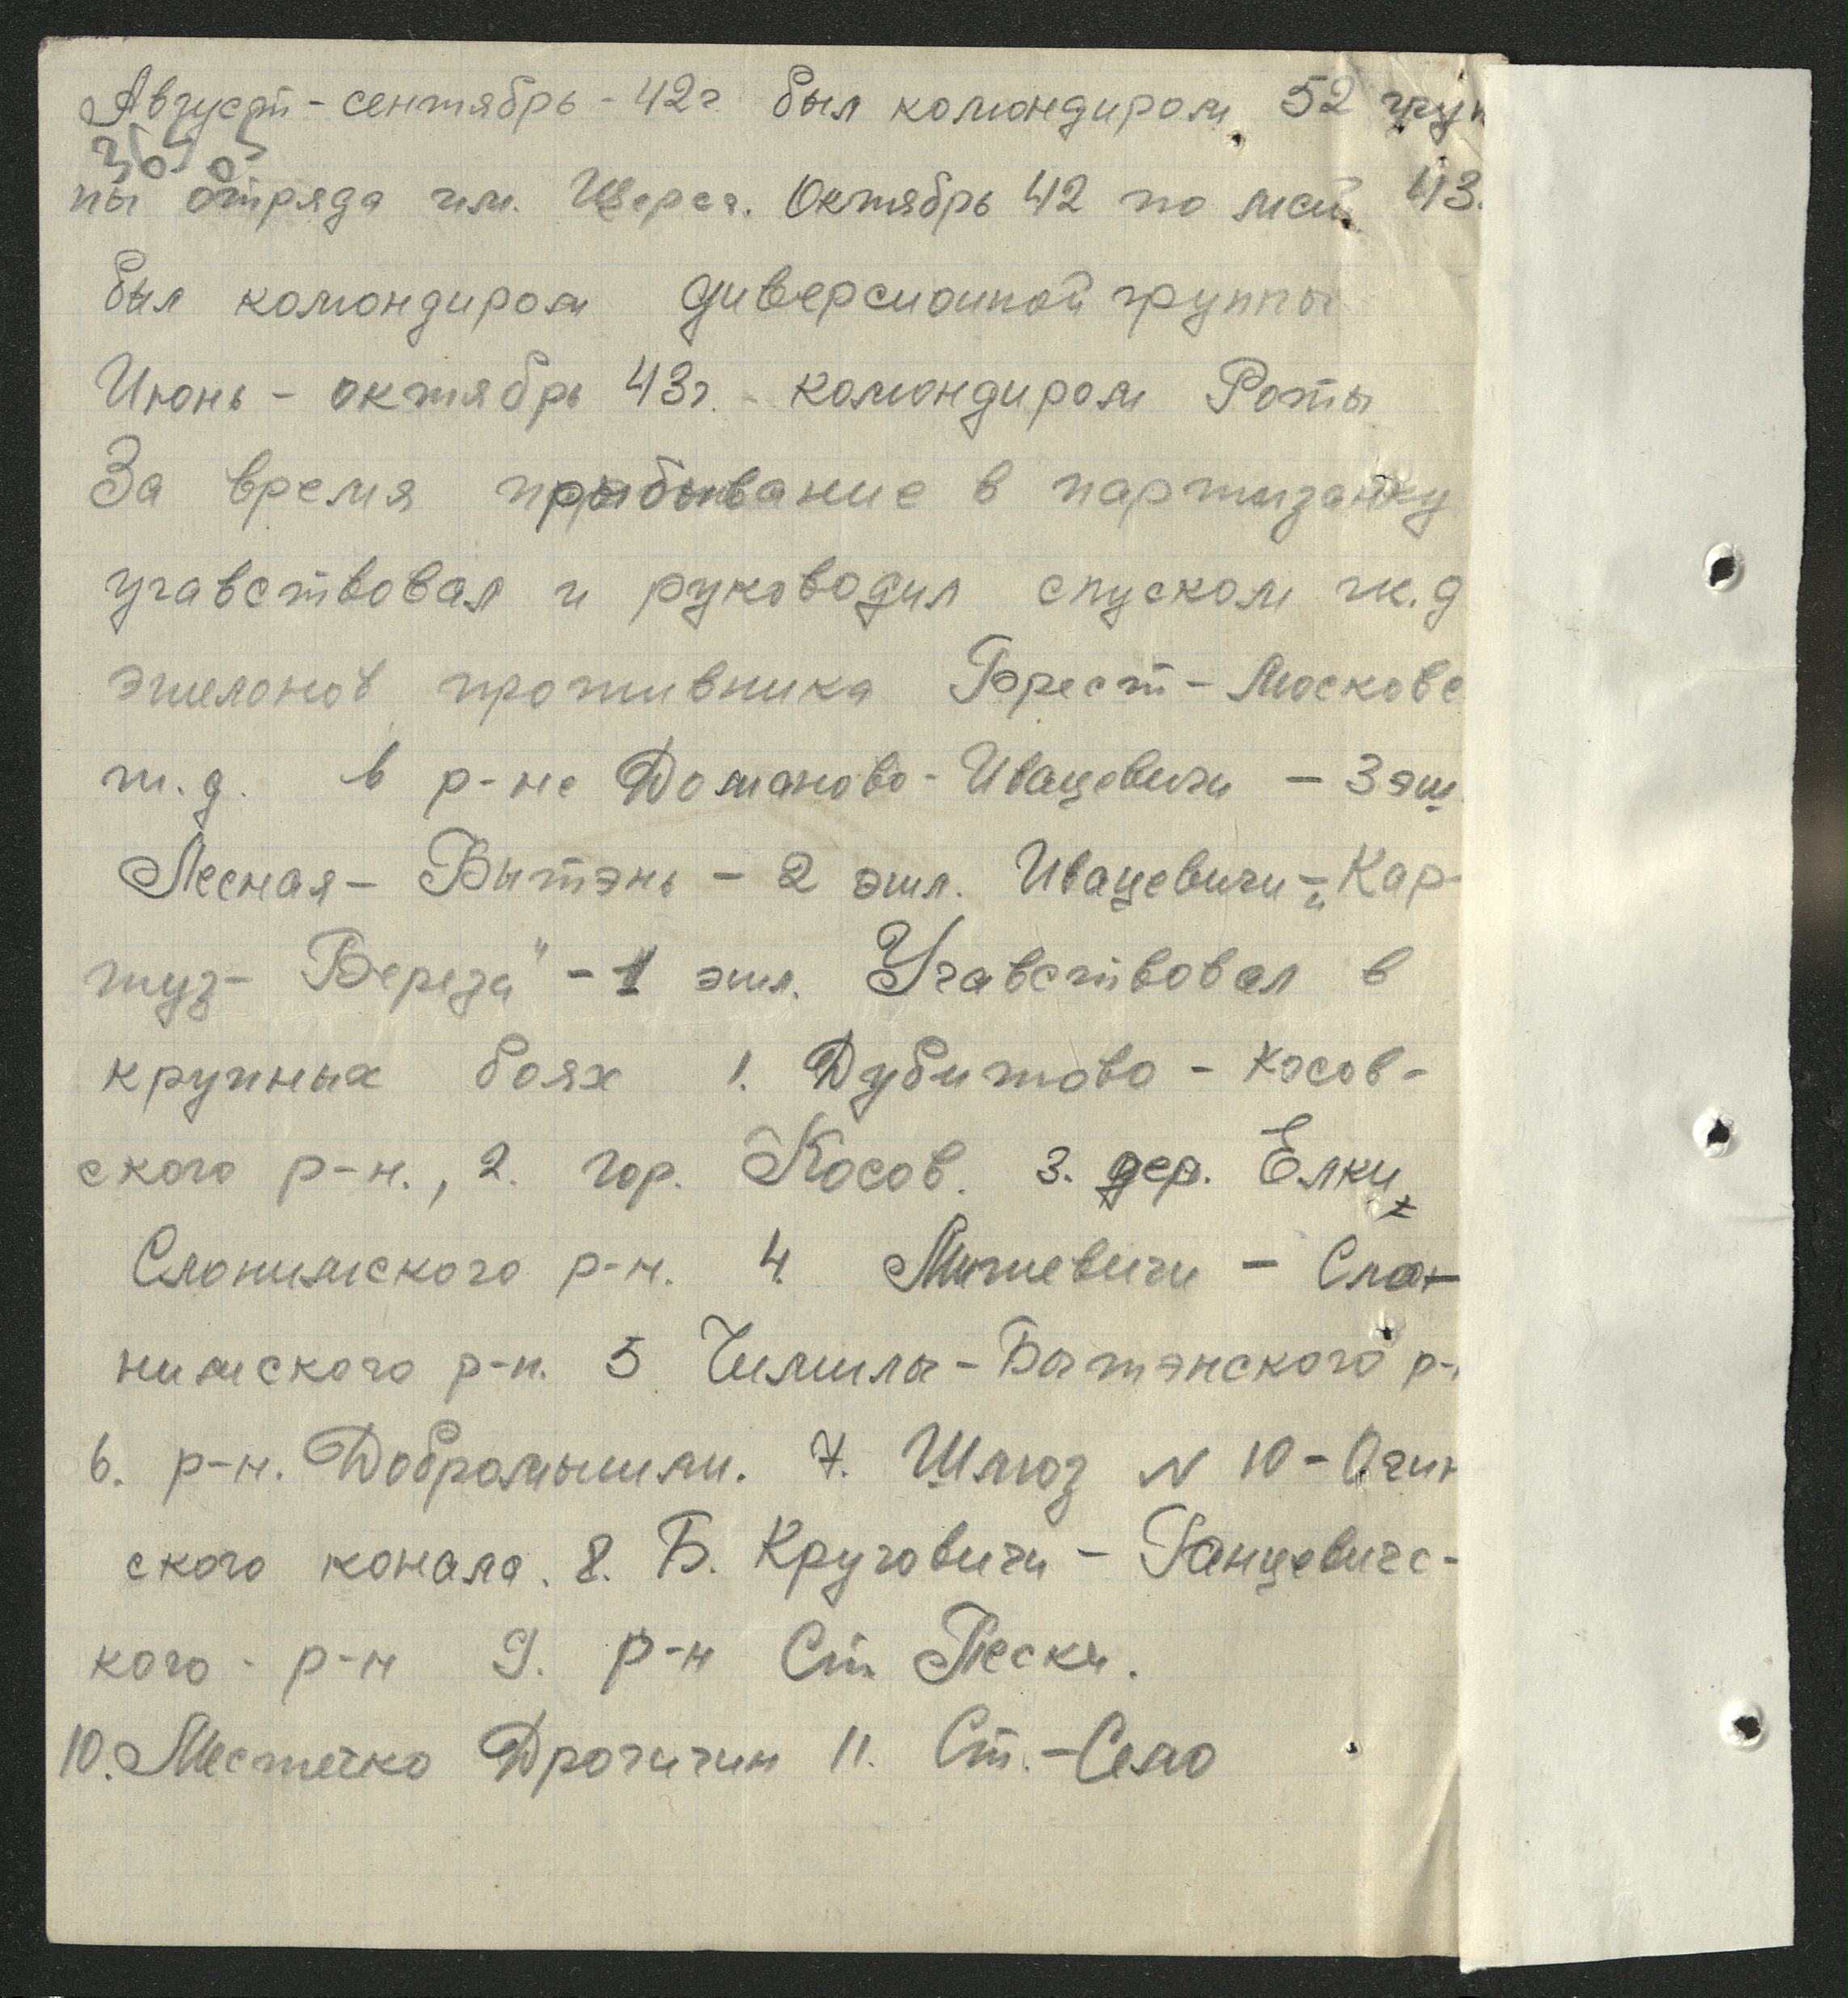 Август - сентябрь - 42г. был командиром 52 груп
пы отряда им. Щорса. Октябрь 42 по май 43.
был командиром диверсионной группы
Июнь - октябрь 43г. - командиром Роты
За время прыбывание в партизанку
учавствовал и руководил спуском ж.д
эшелонов противника Брест - Московс
ж.д. в р-не Доманово - Ивацевичи - 3 эш.
Лесная - Бытэнь - 2 эшл. Ивацевичи - "Кар-
туз - Береза" - 1 эшл. Учавствовал в
крупных боях 1. Дубитово - Косов-
ского р-н., 2. гор. Косов. 3. дер. Елки
Слонимского р-н. 4. Мижевичи - Сло-
нимского р-н. 5 Чемилы - Бытэнского р-
6. р-н. Добромышли. 7. Шлюз N 10 - Огин
ского канала. 8. Б. Круговичи - Ганцевичс-
кого - р-н 9. р-н Ст. Пески.
10. Местечко Дрогичин 11. Ст. - Село